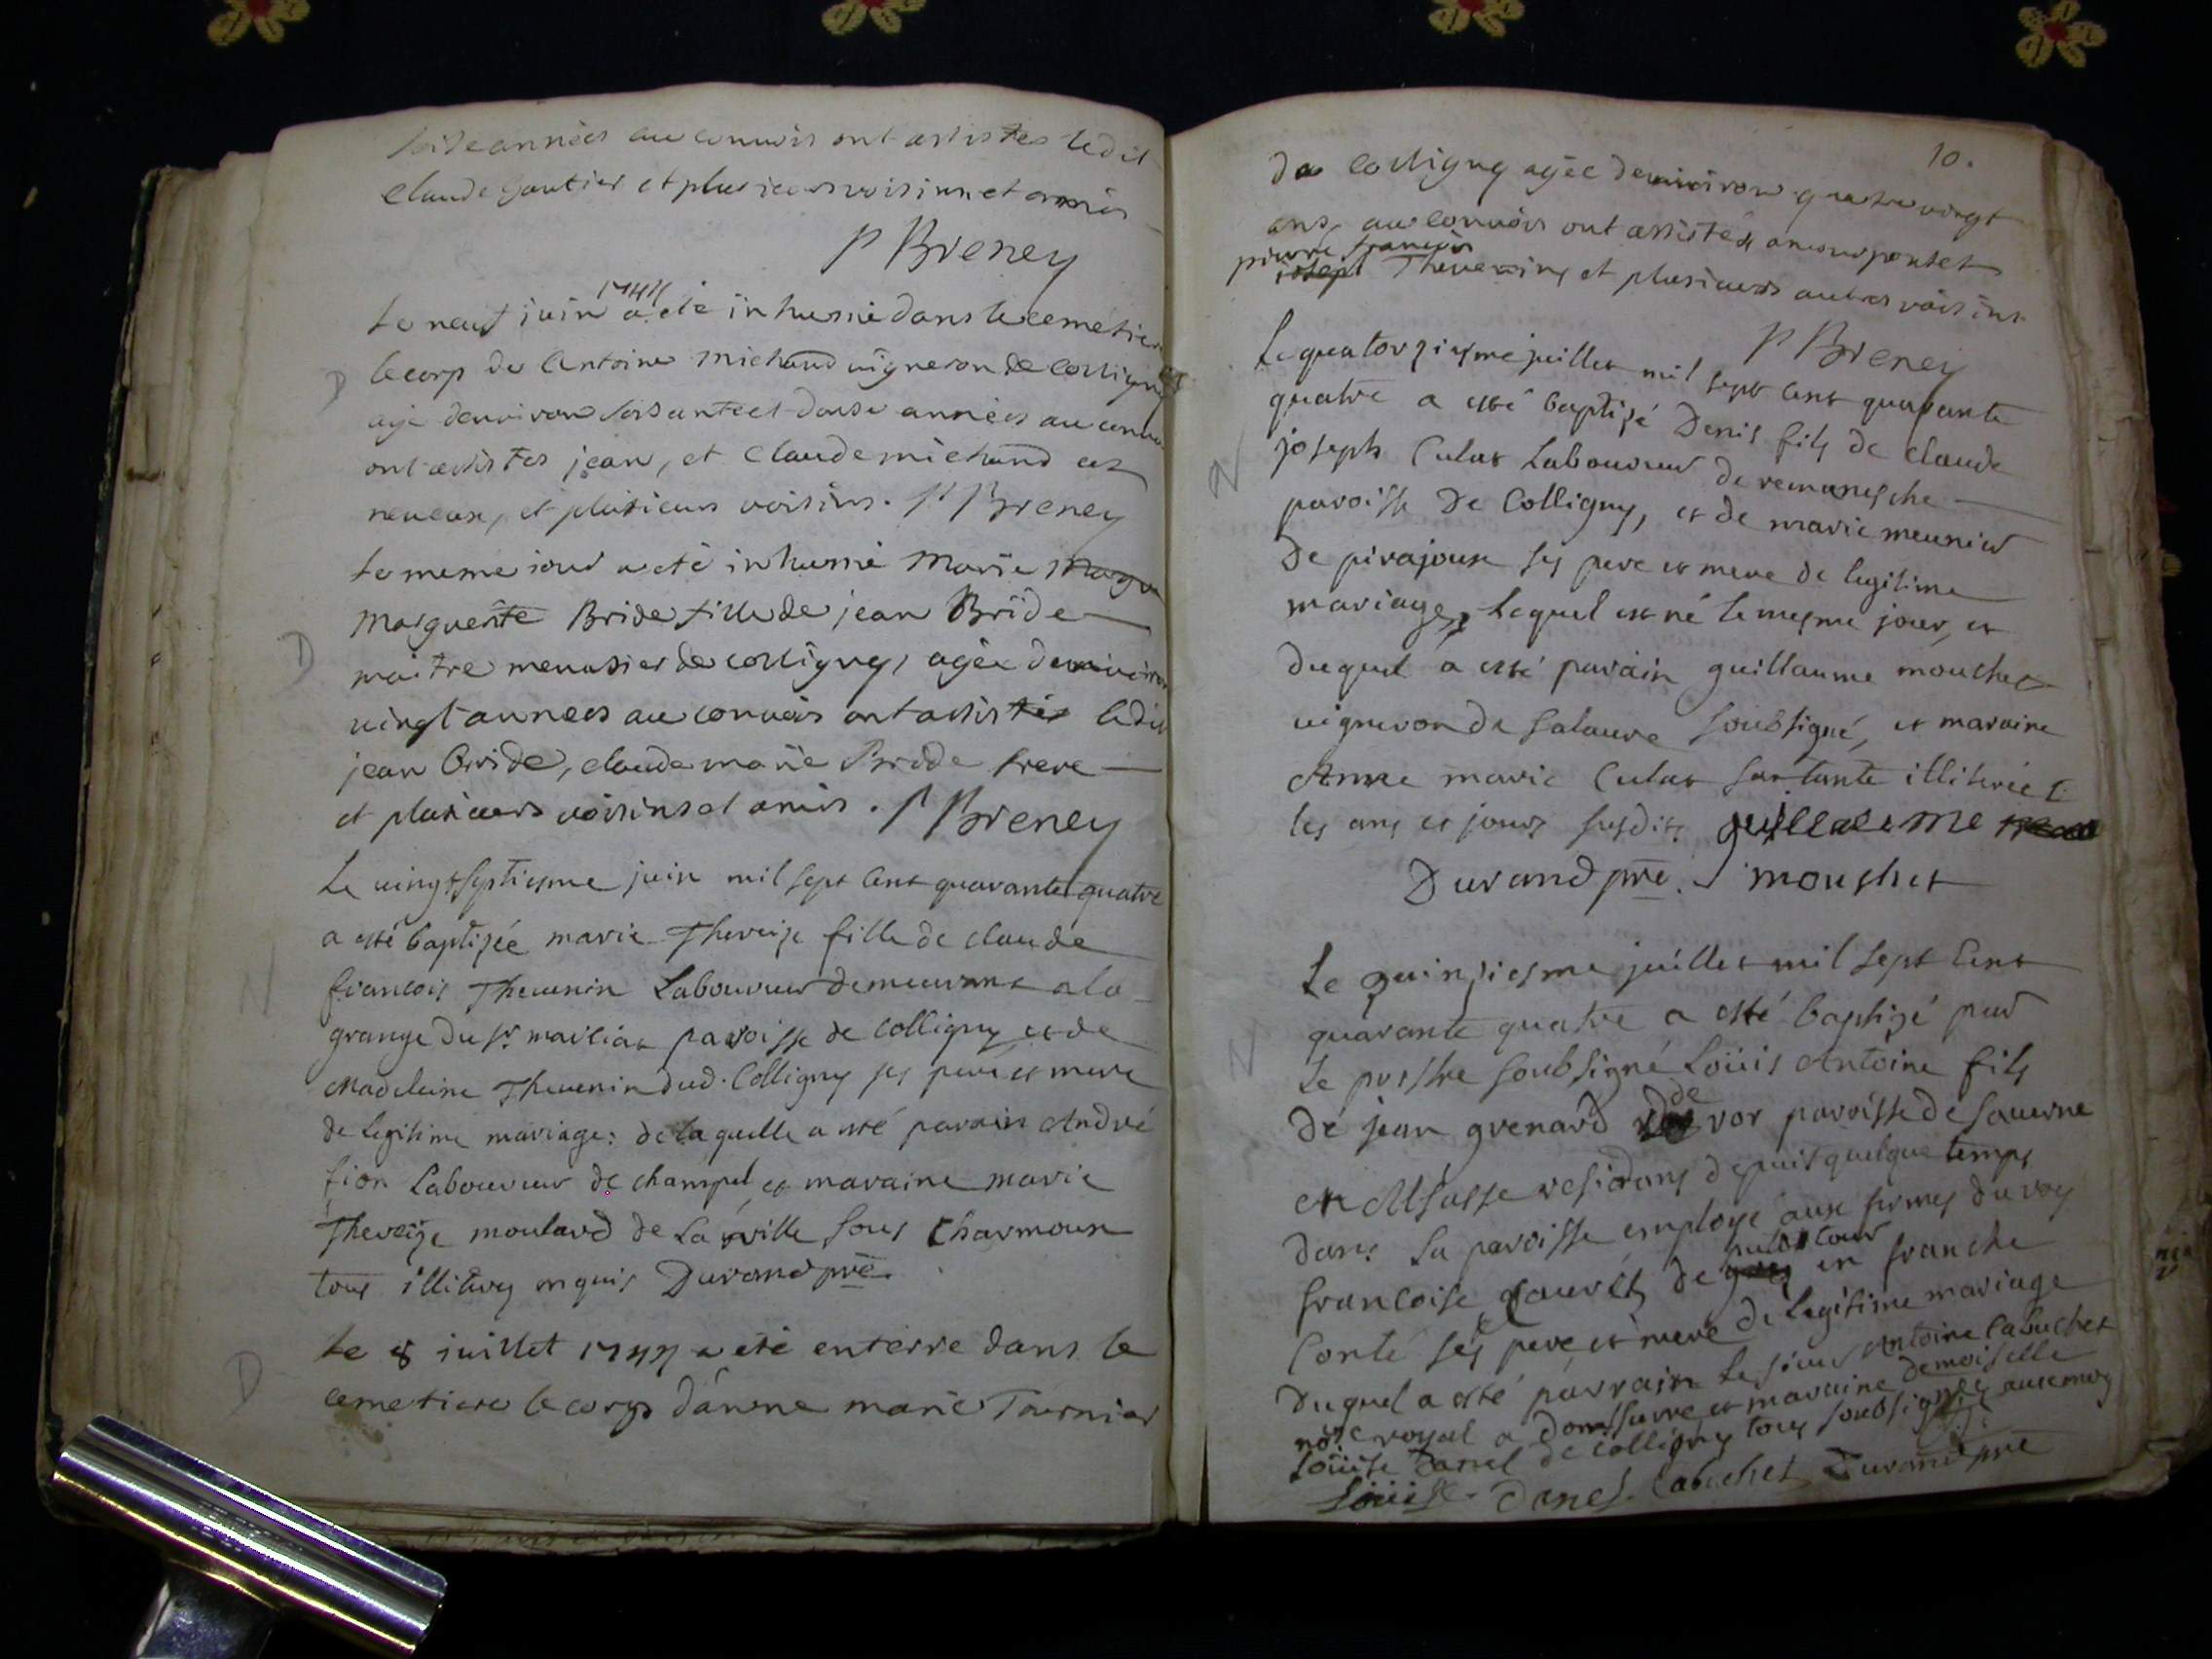 années au convois ont assistes ledit
Claude Gautier et plusieurs voisins et amis
P Breney
Le neuf juin 1744 a été inhumé dans le cemetier
le corp de Antoine Michaud vigneron de Colligny
agé denviron soisante et douse années au convoi
ont assistes jean, et Claude michaud ses
neveux, et plusieurs voisins. P Breney
D
Le meme jour a eté inhumé Marie
Marguerite Bride fille de jean Bride
maitre menusier de colligny, agée denviron
vingt années au convois ont assistés ledit
jean Bride, claude marie Bride frere
et plusieurs voisins et amis. P Breney
D
Le vingt septiesme juin mil sept cent quarante quatre
a esté baptisée marie Thereise fille de claude
francois Thevenin Laboureur demeurant a la
grange du sr. marliat paroisse de Colligny et de
Madeleine Thevenin dud. Colligny ses pere et mere
de legitime mariage: de laquelle a esté parain André
fion Laboureur de champel et maraine marie
Thereize moulard de La ville sous Charmoux
tous illiterez enquis Durand pre.
N
Le 8 juillet 1744 a eté enterre dans le
cemetiere le corps d'anne marie Tournier
D
10.
de Colligny agée denviron quatre vingt
ans, au convois ont assistés
pierre francois
joseph Thevenin, et plusieurs autres voisins
P Breney
Le quatorziesme juillet mil sept cent quarante
quatre a esté baptizé Denis fils de claude
joseph Culat Laboureur de
paroisse de Colligny, et de marie meunier
de pirajoux ses pere et mere de legitime
mariage, Lequel est né le mesme jour, et
duquel a esté parain guillaume mouchet
vigneron de salavre soubsigné, et maraine
Anne marie Culat sa tante illiterée
les ans et jours susdits. guillaume
Durand pre. mouchet
N
Le quinziesme juillet mil sept cent
quarante quatre a esté baptizé par
Le prestre soubsigné Loüis Antoine fils
de jean grenard de vor paroisse de saverne
en Alsasse residans depuis quelque temps
dans la paroisse employé aux fermes du roy
francoise de en franche
Conté ses pere et mere de Legitime mariage
duquel a esté parrain Le sieur Antoine Cabuchet
nore royal a domsurre et maraine demoiselle
Loüise Danel de Colligny tous soubsignés avec moy
Loüise Danel. Cabuchet Durand pre
N